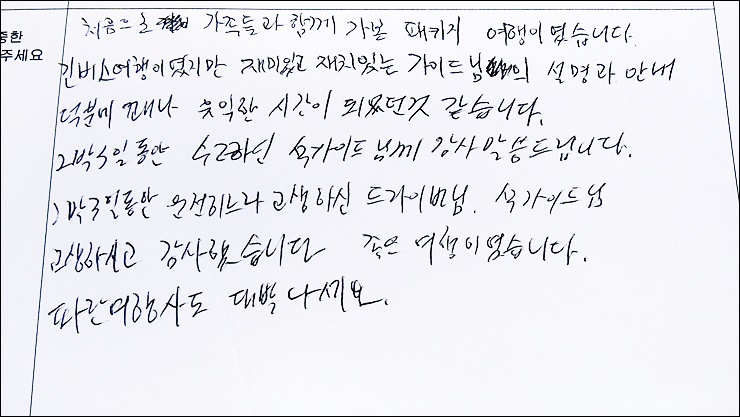 중한
주세요
처음으로 가족들과 함께 가본 패키지 여행이였습니다.
긴버스여행이였지만 재미있고 재치있는 가이드님의 설명과 안내
덕분에 꽤나 유익한 시간이 되었던것 같습니다.
2박3일동안 수고하신 석가이드님께 감사말씀드립니다.
2박3일동안 운전하느라 고생하신 드라이버님. 석가이드님
고생하셨고 감사했습니다 좋은 여행이였습니다.
파란여행사도 대박 나세요.